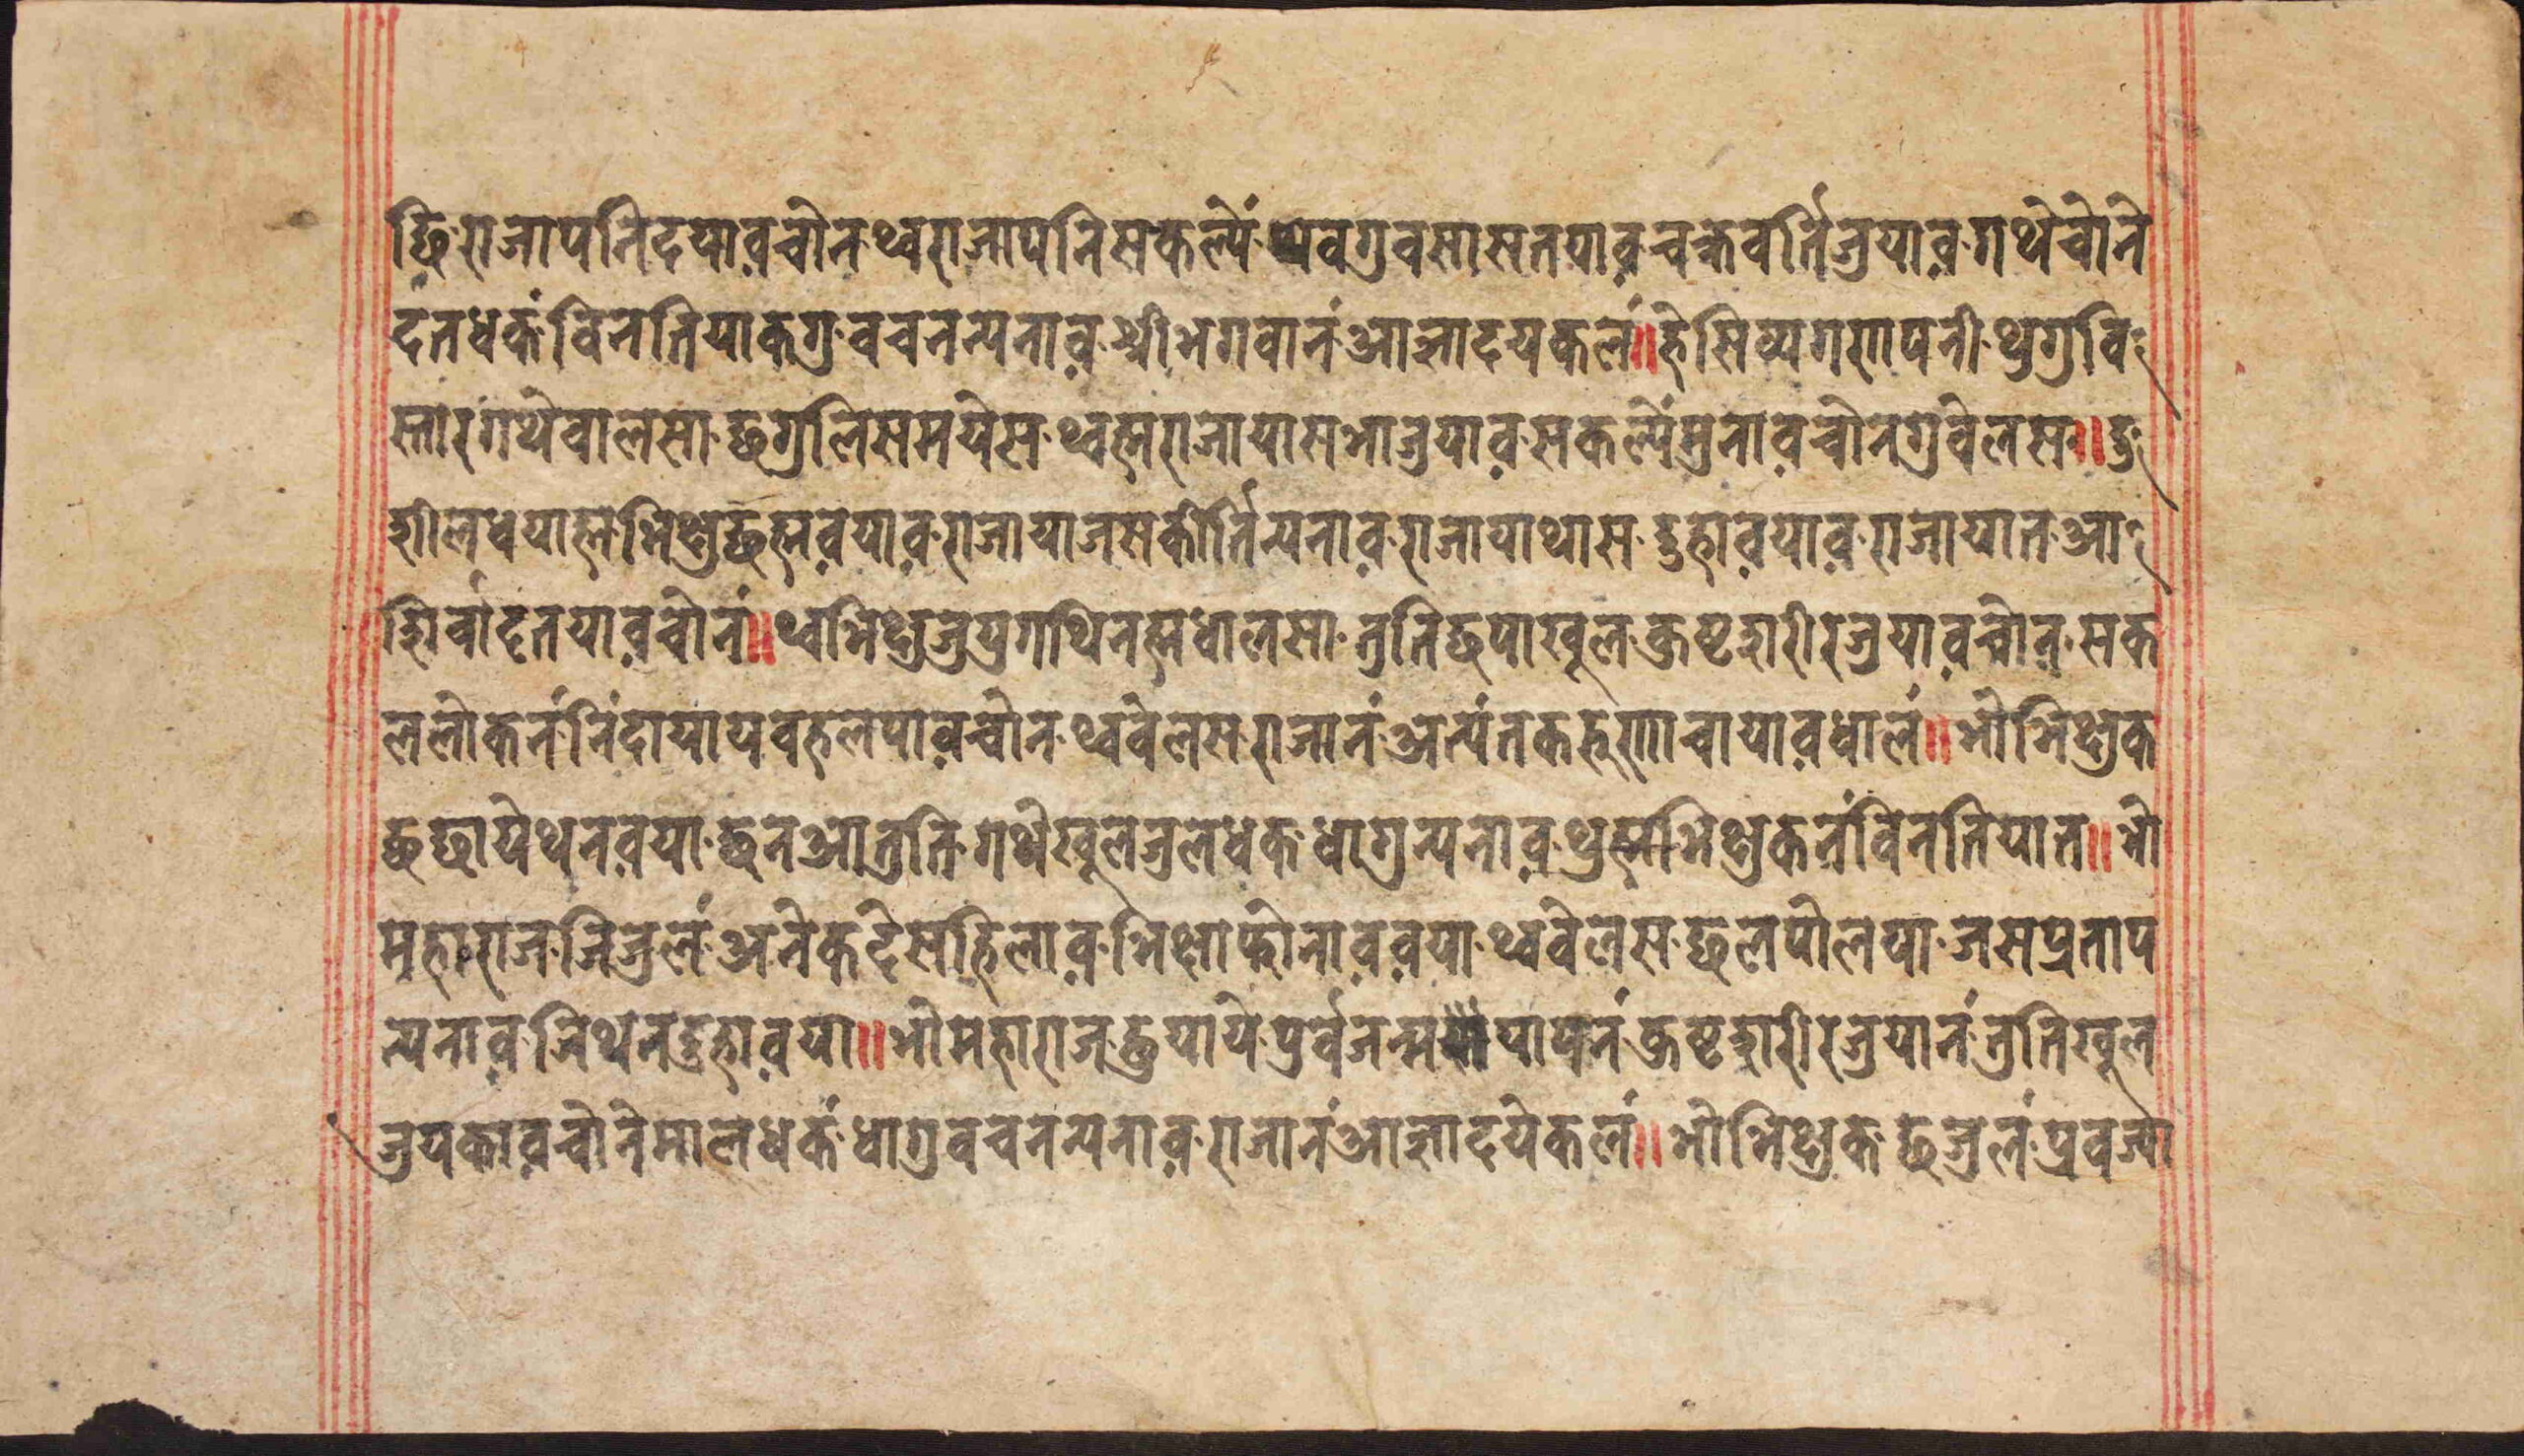 छि राजापनि दयाव चोन थ्व राजापनि सकल्यें थवगुवसासतयाव चक्रवर्ति जुयाव गथे चोने
दत धकं विनति याकगु वचन न्यनाव श्रीभगवानं आज्ञा दयकलं॥ हे सिष्यगणपनी थुगु वि
स्तार गथे वालसा छगुलि समयेस थ्वह्म राजाया सभा जुयाव सकल्यें मुनाव चोनगु वेलस॥ दु
शील धयाह्म भिक्षु छह्म वयाव राजाया जस कीर्ति न्यनाव राजायाथास दुहा वयाव राजायात आ
शिर्वाद तयाव चोनं॥ थ्व भिक्षु जुयु गथिनह्म धालसा तुति छपा खूल कुष्ट शरीर जुयाव चोन सक
ल लोकनं निंदा यायव हलपाव चोन थ्व वेलस राजानं अत्यंत करूणा चायाव धालं॥ भो भिक्षुक
छ छाये थन वया छन आ तुति गथे खूल जुल धक धागु न्यनाव थुह्म भिक्षुकनं विनति यात॥ भो
महाराज जि जुलं अनेक देस हिलाव भिक्षा फोनाव वया थ्व वेलस छलपोलया जस प्रताप
न्यनाव जि थन दुहा वया॥ भो महाराज छु याये पुर्वजन्मया पापनं कुष्ट शरीर जुयानं तुति खूल
जुयकाव चोने माल धकं धागु वचन न्यनाव राजानं आज्ञा दयेकलं॥ भो भिक्षुक छ जुलं प्रवज्या